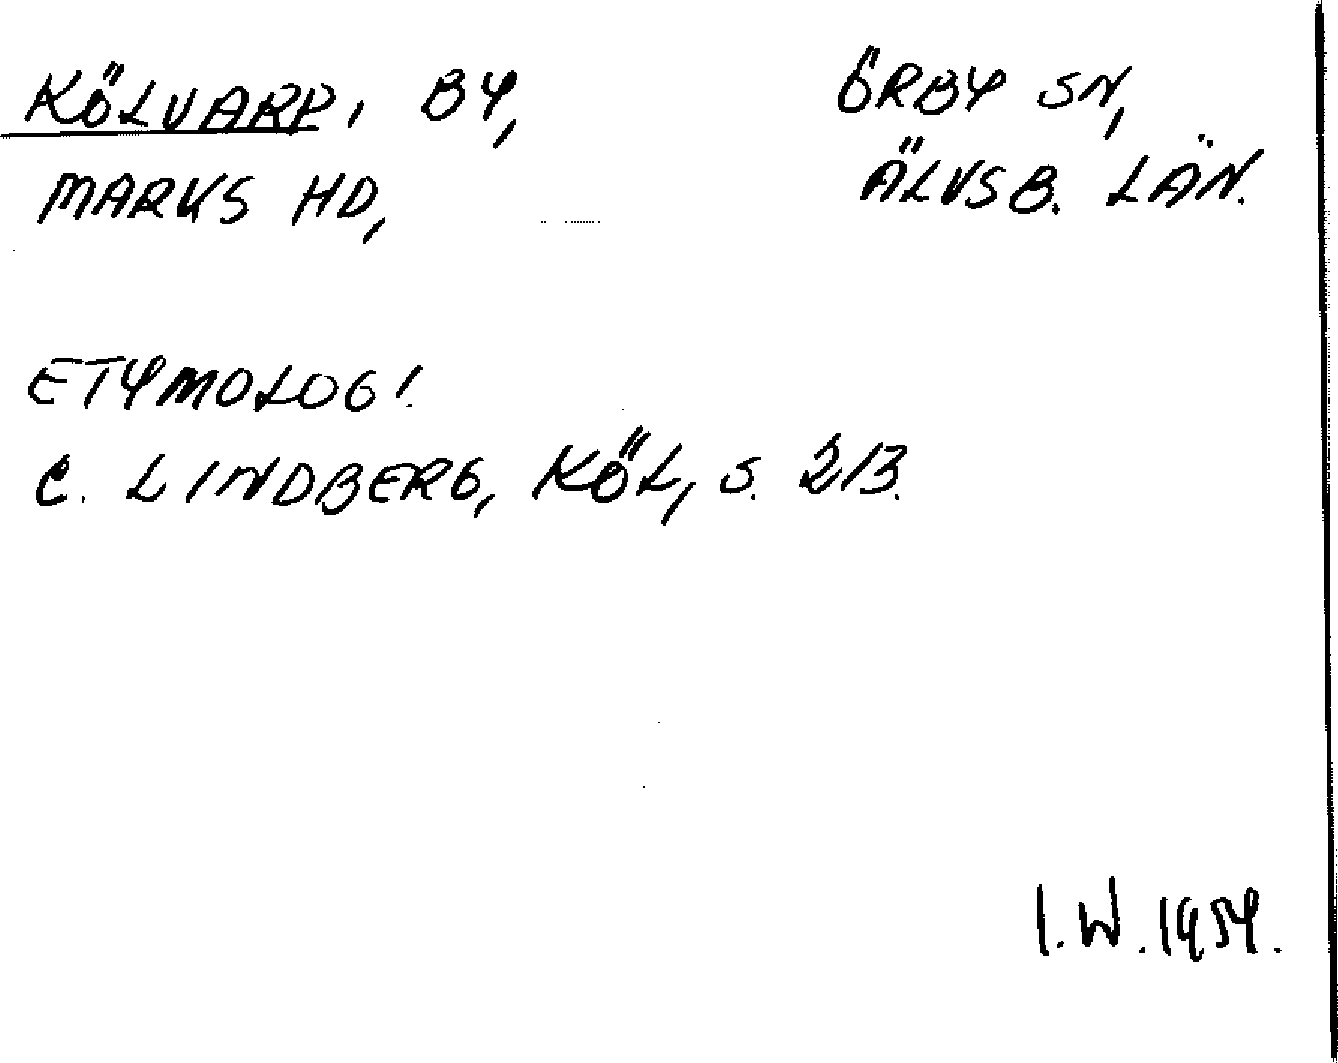 KÖLVARP, BY, ÖRBY SN,
MARKS HD, ÄLVSB. LÄN.
ETYMOLOGI.
C. LINDBERG, KÖL, S. 213.
I.W. 1954.